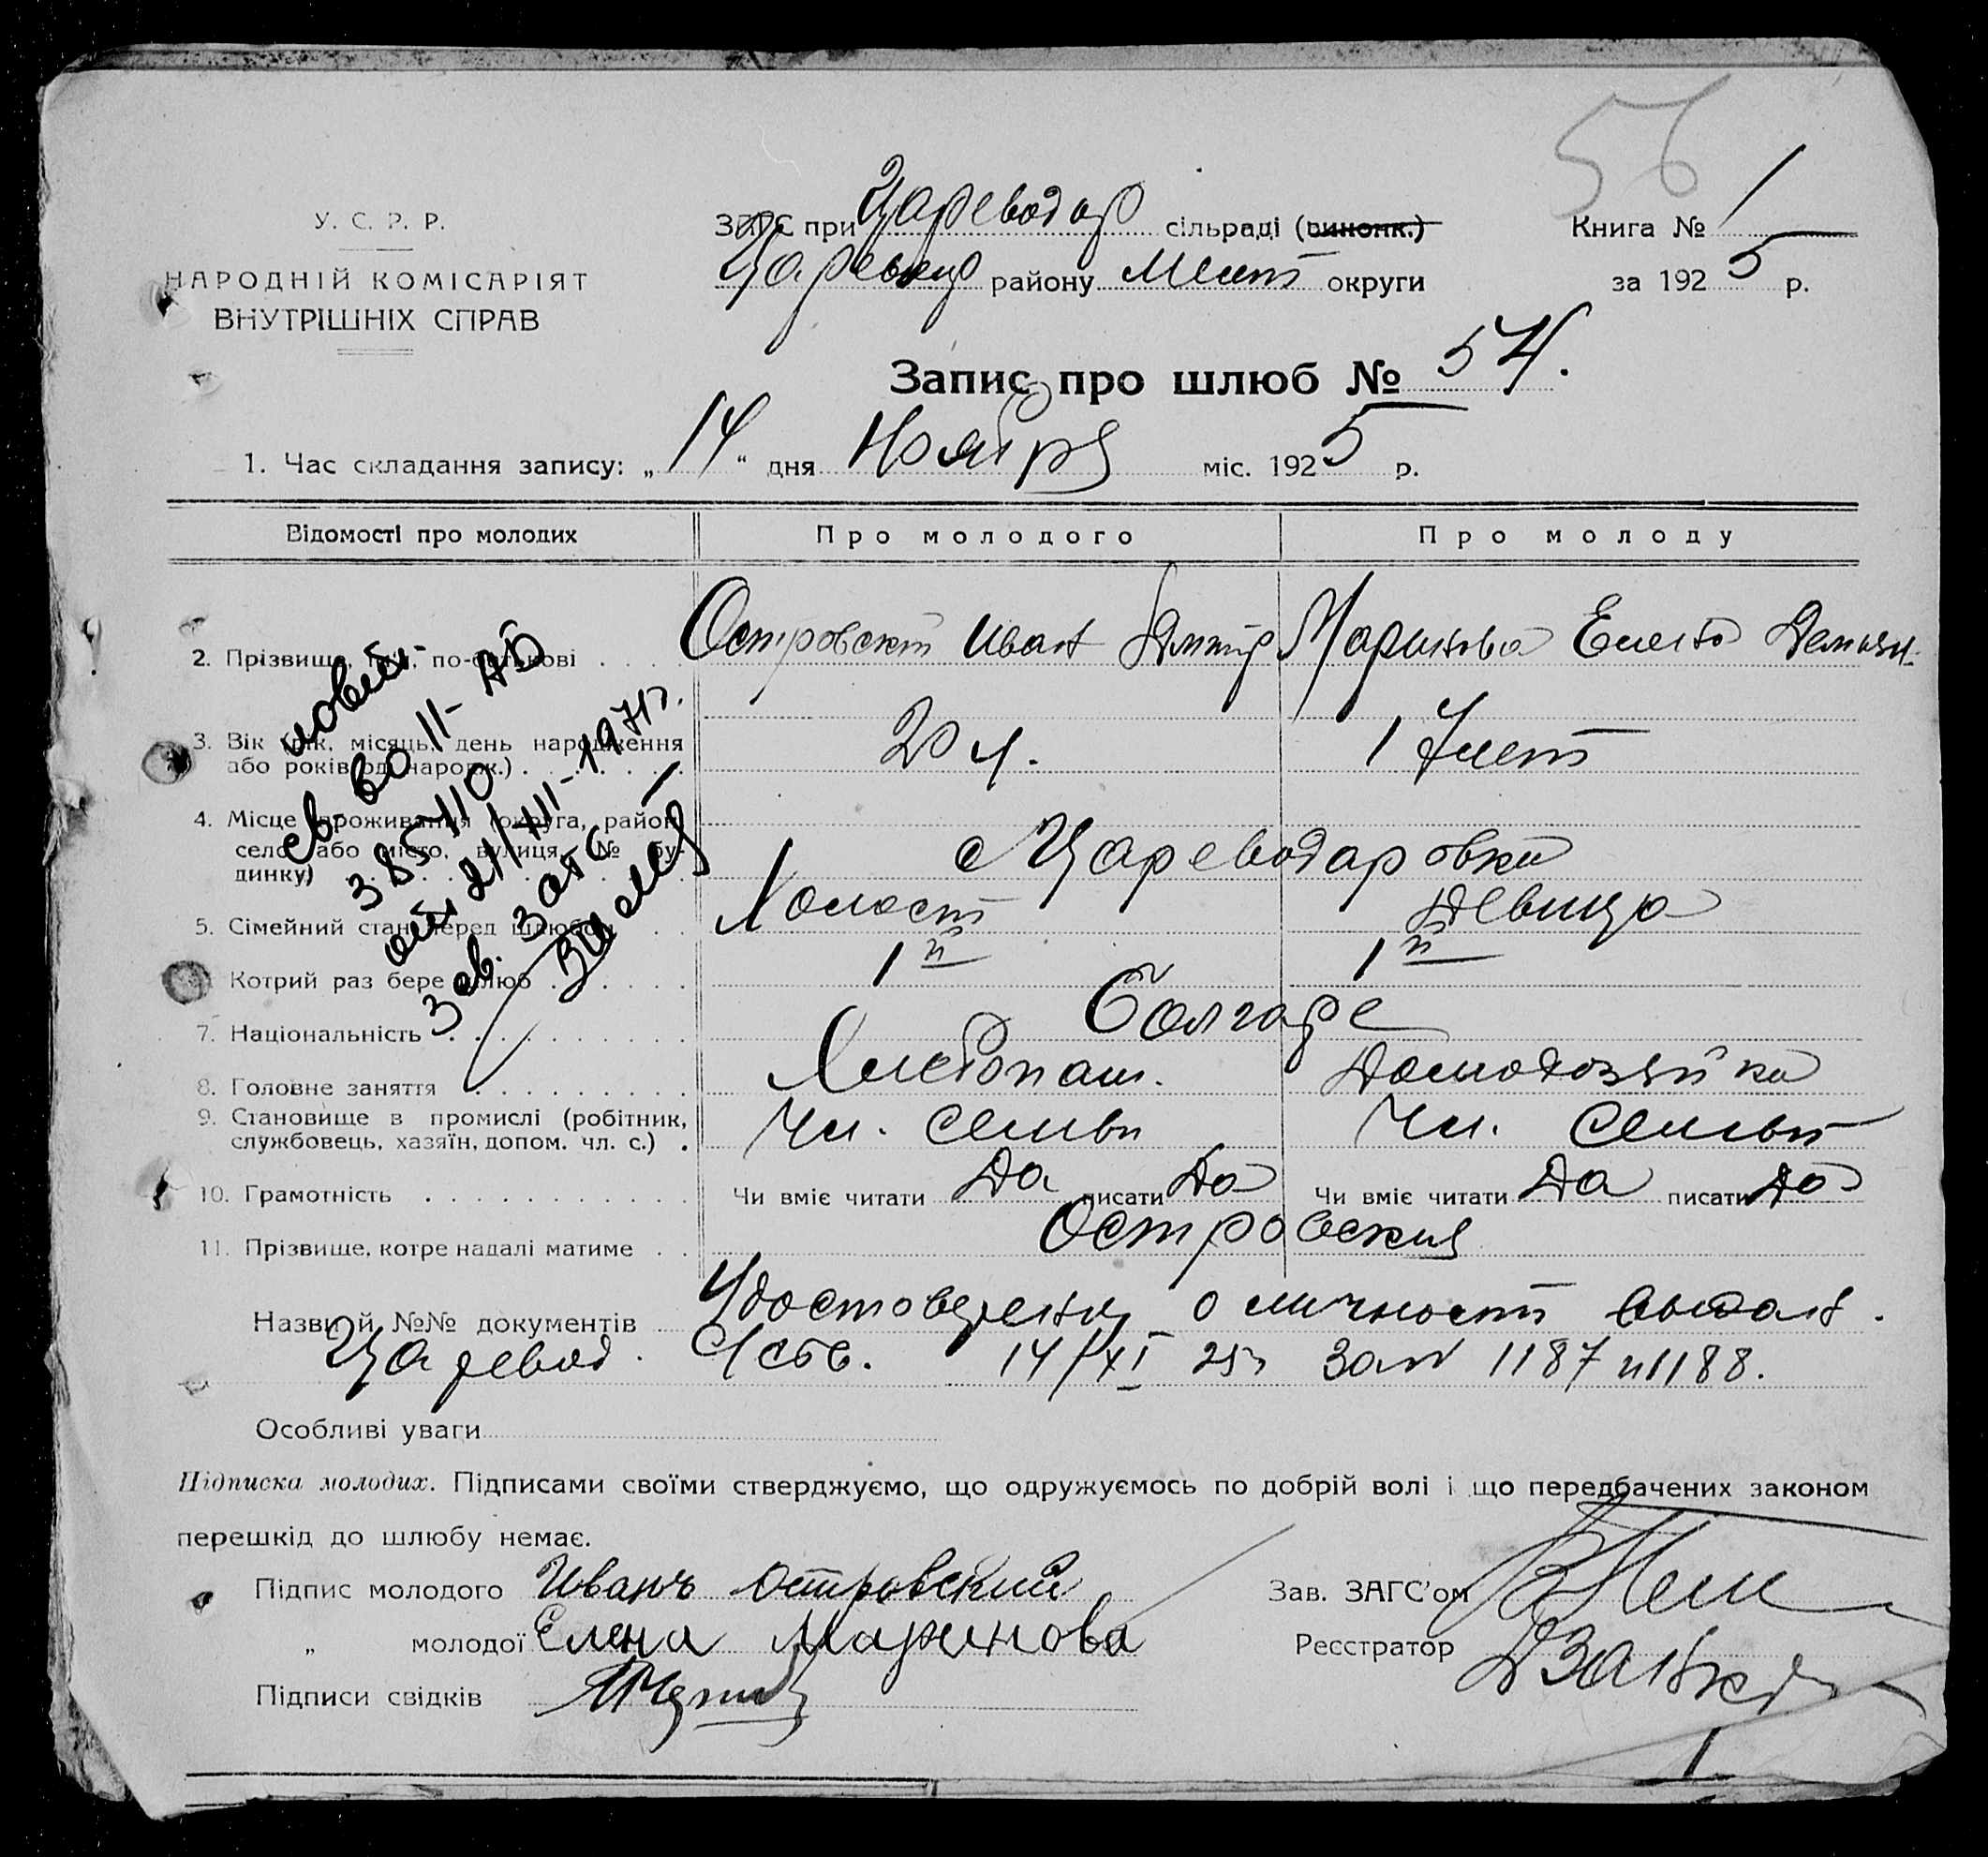 56
У. С. Р. Р.
НАРОДНІЙ КОМІСАРІЯТ
ВНУТРІШНІХ СПРАВ
ЗАГС при Цареводар сільраді (виконк.)
району Мелит округи
Книга № 1
за 1925 р.
Запис про шлюб № 54.
1. Час складання запису: „14“ дня Ноября міс. 1925 р.
Відомості про молодих Про молодого Про молоду
2. Прізвище, ім'я, по-батькові Островский Иван Дмитр Маринова Елена Демьян.
3. Вік (рік, місяць, день народження
або років од народж.) 20 л. 17 лет
4. Місце проживання (округа, район,
село або місто, вулиця, № бу-
динку) с Цареводаровки
5. Сімейний стан перед шлюбом Холост Девица
Котрий раз бере шлюб 1й 1й
7. Національність Болгаре
8. Головне заняття Хлебопаш. Домохозяйка
9. Становище в промислі (робітник,
службовець, хазяїн, допом. чл. с.) Чл. семьи Чл. семьи
10. Грамотність Чи вміє читати Да писати Да Чи вміє читати Да писати Да
11. Прізвище, котре надалі матиме Островские
повт.
св-во II-АБ
385110
от 21/VII-1971г.
Зав. загс
Назви й №№ документів Удостоверения о личности выдан.
Царевод. 14/XI 25г за № 1187 и 1188.
Особливі уваги
Підписка молодих. Підписами своїми стверджуємо, що одружуємось по добрій волі і що передбачених законом
перешкід до шлюбу немає.
Підпис молодого Иванъ Островский
„ молодої Елена Маринова
Підписи свідків
Зав. ЗАГС'ом
Реєстратор